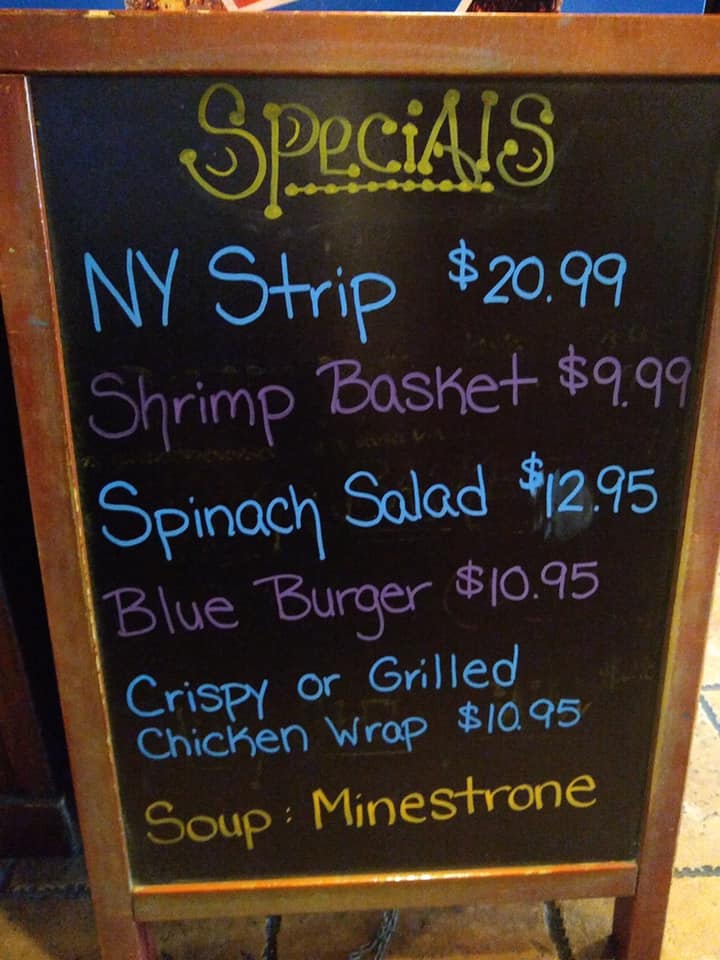 Specials
NY Strip $20.99
Shrimp Basket $9.99
Spinach Salad $12.95
Blue Burger $10.95
Crispy or Grilled
Chicken Wrap $10.95
Soup: Minestrone